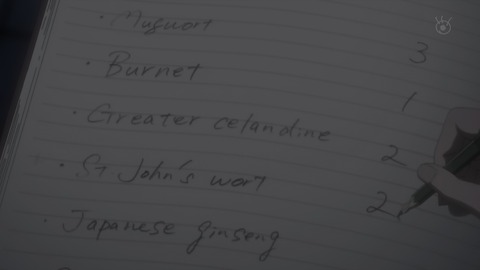 · Mugwort 3
· Burnet 1
· Greater celandine 2
· St John's wort 2
· Japanese ginseng